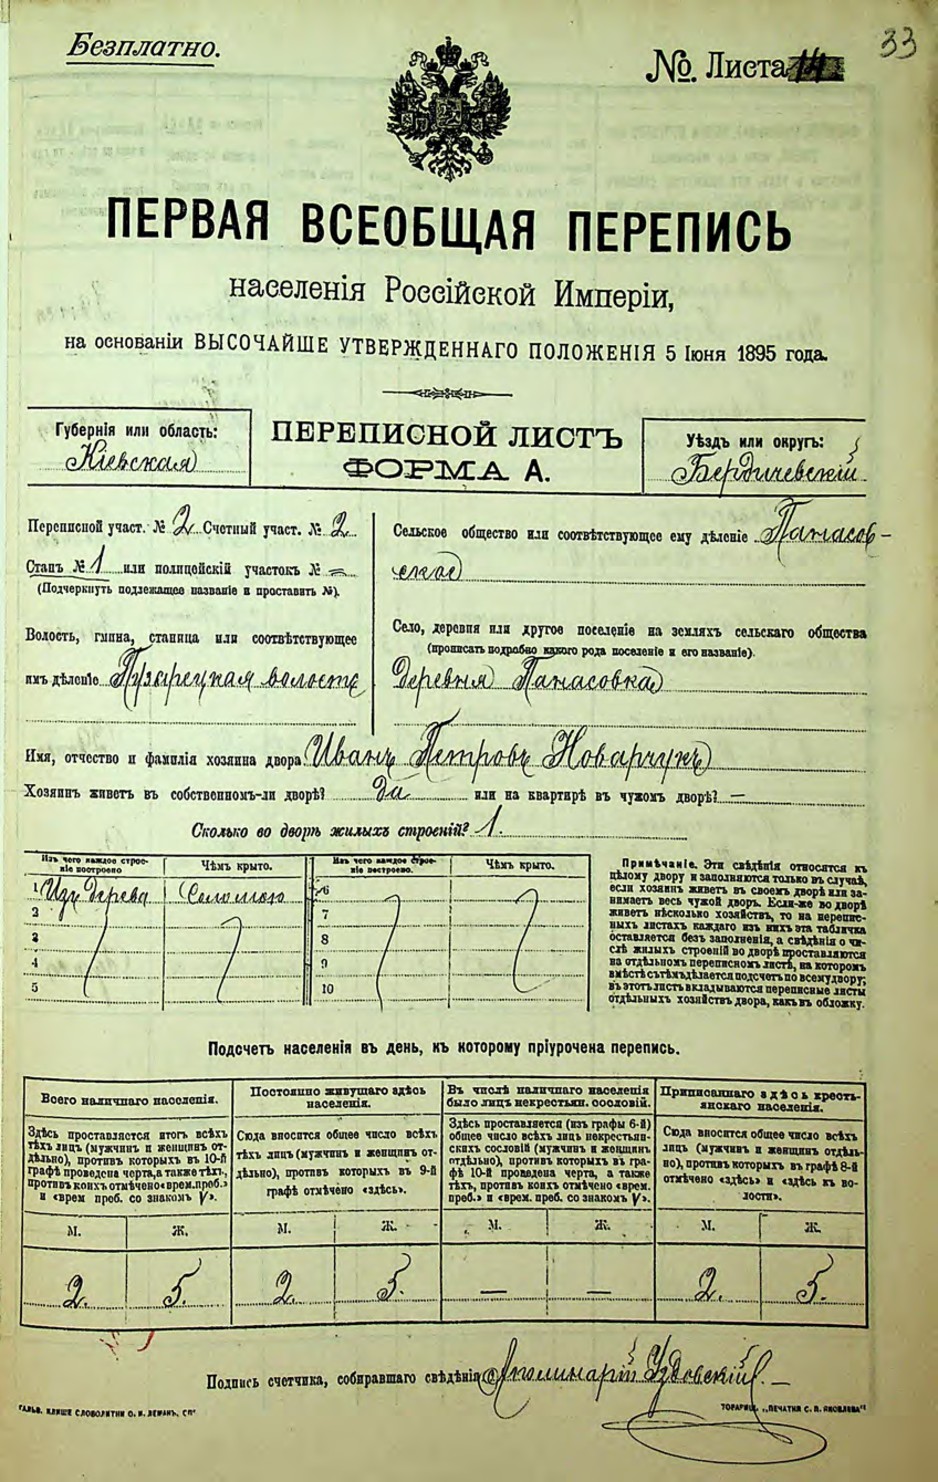 Безплатно.
№. Листа 14
33
ПЕРВАЯ ВСЕОБЩАЯ ПЕРЕПИСЬ
населенія Россійской Имперіи,
на основаніи ВЫСОЧАЙШЕ УТВЕРЖДЕННАГО ПОЛОЖЕНІЯ 5 Іюня 1895 года.
Губернія или область:
Кіевская
ПЕРЕПИСНОЙ ЛИСТЪ
ФОРМА А.
Уѣздъ или округъ:
Бердичевскій
Переписной участ. № 2 Счетный участ. № 2
Станъ № 1 или полицейскій участокъ №
(Подчеркнуть подлежащее названіе и проставить №).
Волость, гмина, станица или соотвѣтствующее
имъ дѣленіе Пузырецкая волость
Сельское общество или соотвѣтствующее ему дѣленіе Панасов-
ское
Село, деревня или другое поселеніе на земляхъ сельскаго общества
(прописать подробно какого рода поселеніе и его названіе).
Деревня Панасовка
Имя, отчество и фамилія хозяина двора Иванъ Петровъ Новарчукъ
Хозяинъ живетъ въ собственномъ-ли дворѣ? Да или на квартирѣ въ чужомъ дворѣ? —
Сколько во дворѣ жилыхъ строеній? 1.
Изъ чего каждое строе-
ніе построено
Чѣмъ крыто.
Изъ чего каждое строе-
ніе построено.
Чѣмъ крыто.
1 Изъ дерева Соломою 6
2 7
3 8
4 9
5 10
Примѣчаніе. Эти свѣдѣнія относятся къ
цѣлому двору и заполняются только въ случаѣ,
если хозяинъ живетъ въ своемъ дворѣ или за-
нимаетъ весь чужой дворъ. Если-же во дворѣ
живетъ нѣсколько хозяйствъ, то на перепис-
ныхъ листахъ каждаго изъ нихъ эта табличка
оставляется безъ заполненія, а свѣдѣнія о чи-
слѣ жилыхъ строеній во дворѣ проставляются
на отдѣльномъ переписномъ листѣ, на которомъ
вмѣстѣ съ тѣмъ дѣлается подсчетъ по всему двору;
въ этотъ листъ вкладываются переписные листы
отдѣльныхъ хозяйствъ двора, какъ въ обложку.
Подсчетъ населенія въ день, къ которому пріурочена перепись.
Всего наличнаго населенія.
Здѣсь проставляется итогъ всѣхъ
тѣхъ лицъ (мужчинъ и женщинъ от-
дѣльно), противъ которыхъ въ 10-й
графѣ проведена черта, а также тѣхъ,
противъ коихъ отмѣчено «врем. преб.»
и «врем преб. со знакомъ V».
Постоянно живущаго здѣсь
населенія.
Сюда вносится общее число всѣхъ
тѣхъ лицъ (мужчинъ и женщинъ от-
дѣльно), противъ которыхъ въ 9-й
графѣ отмѣчено «здѣсь».
Въ числѣ наличнаго населенія
было лицъ некрестьян. сословій.
Здѣсь проставляется (изъ графы 6-й)
общее число всѣхъ лицъ некрестьян-
скихъ сословій (мужчинъ и женщинъ
отдѣльно), противъ которыхъ въ гра-
фѣ 10-й проведена черта, а также
тѣхъ, противъ коихъ отмѣчено «врем.
преб.» и «врем. преб. со знакомъ V».
Приписаннаго здѣсь кресть-
янскаго населенія.
Сюда вносится общее число всѣхъ
лицъ (мужчинъ и женщинъ отдѣль-
но), противъ которыхъ въ графѣ 8-й
отмѣчено «здѣсь» и «здѣсь къ во-
лости».
М. Ж. М. Ж. М. Ж. М. Ж.
2. 5. 2. 5. — — 2. 5.
Подпись счетчика, собиравшаго свѣдѣнія Аполинарій Удовскій. —
ГАЛЬВ. КЛИШЕ СЛОВОЛИТНИ О. И. ЛЕМАНЪ, СПБ
ТОВАРИЩ. „ПЕЧАТНЯ С. П. ЯКОВЛЕВА"